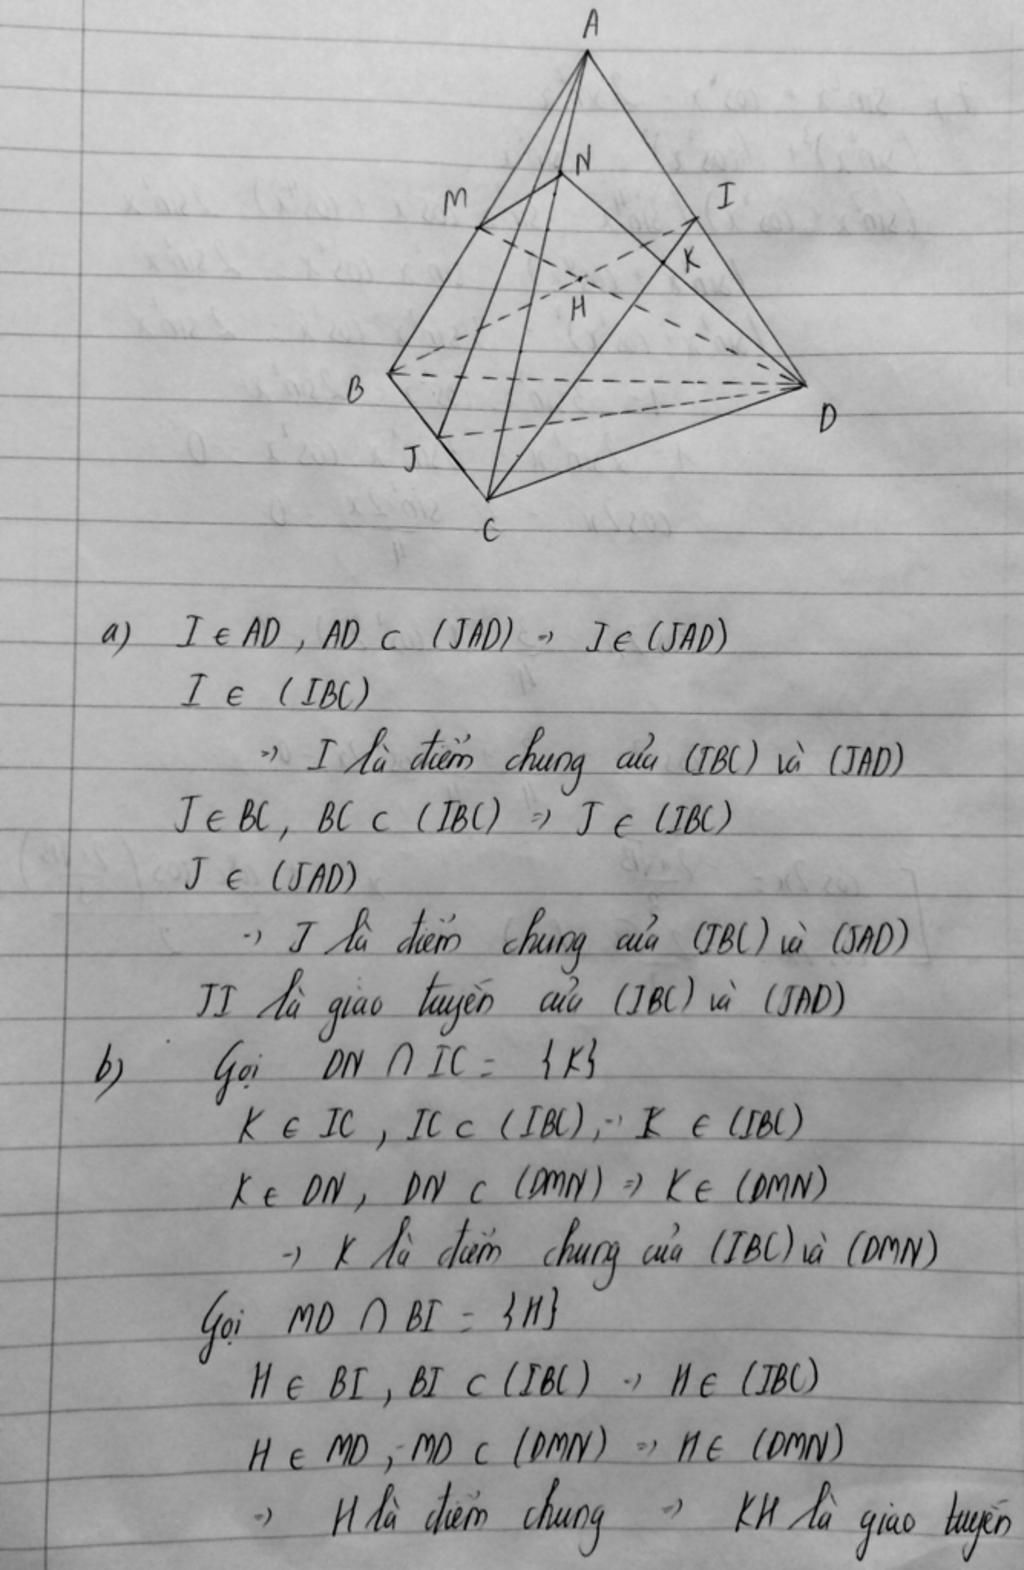 A
N
M
I
K
H
B
D
J
C
a) I ∈ AD, AD ⊂ (JAD) => I ∈ (JAD)
I ∈ (IBC)
=> I là điểm chung của (IBC) và (JAD)
J ∈ BC, BC ⊂ (IBC) => J ∈ (IBC)
J ∈ (JAD)
=> J là điểm chung của (IBC) và (JAD)
JI là giao tuyến của (IBC) và (JAD)
b) Gọi DN ∩ IC = {K}
K ∈ IC, IC ⊂ (IBC), => K ∈ (IBC)
K ∈ DN, DN ⊂ (DMN) => K ∈ (DMN)
=> K là điểm chung của (IBC) và (DMN)
Gọi MD ∩ BI = {H}
H ∈ BI, BI ⊂ (IBC) => H ∈ (IBC)
H ∈ MD, MD ⊂ (DMN) => H ∈ (DMN)
=> H là điểm chung => KH là giao tuyến